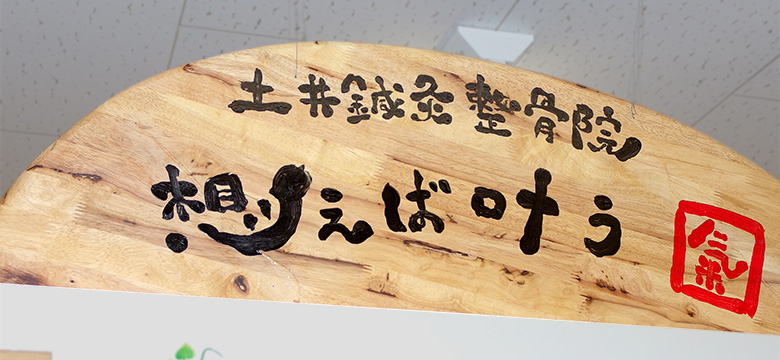 土井鍼灸整骨院
想えば叶う
氣